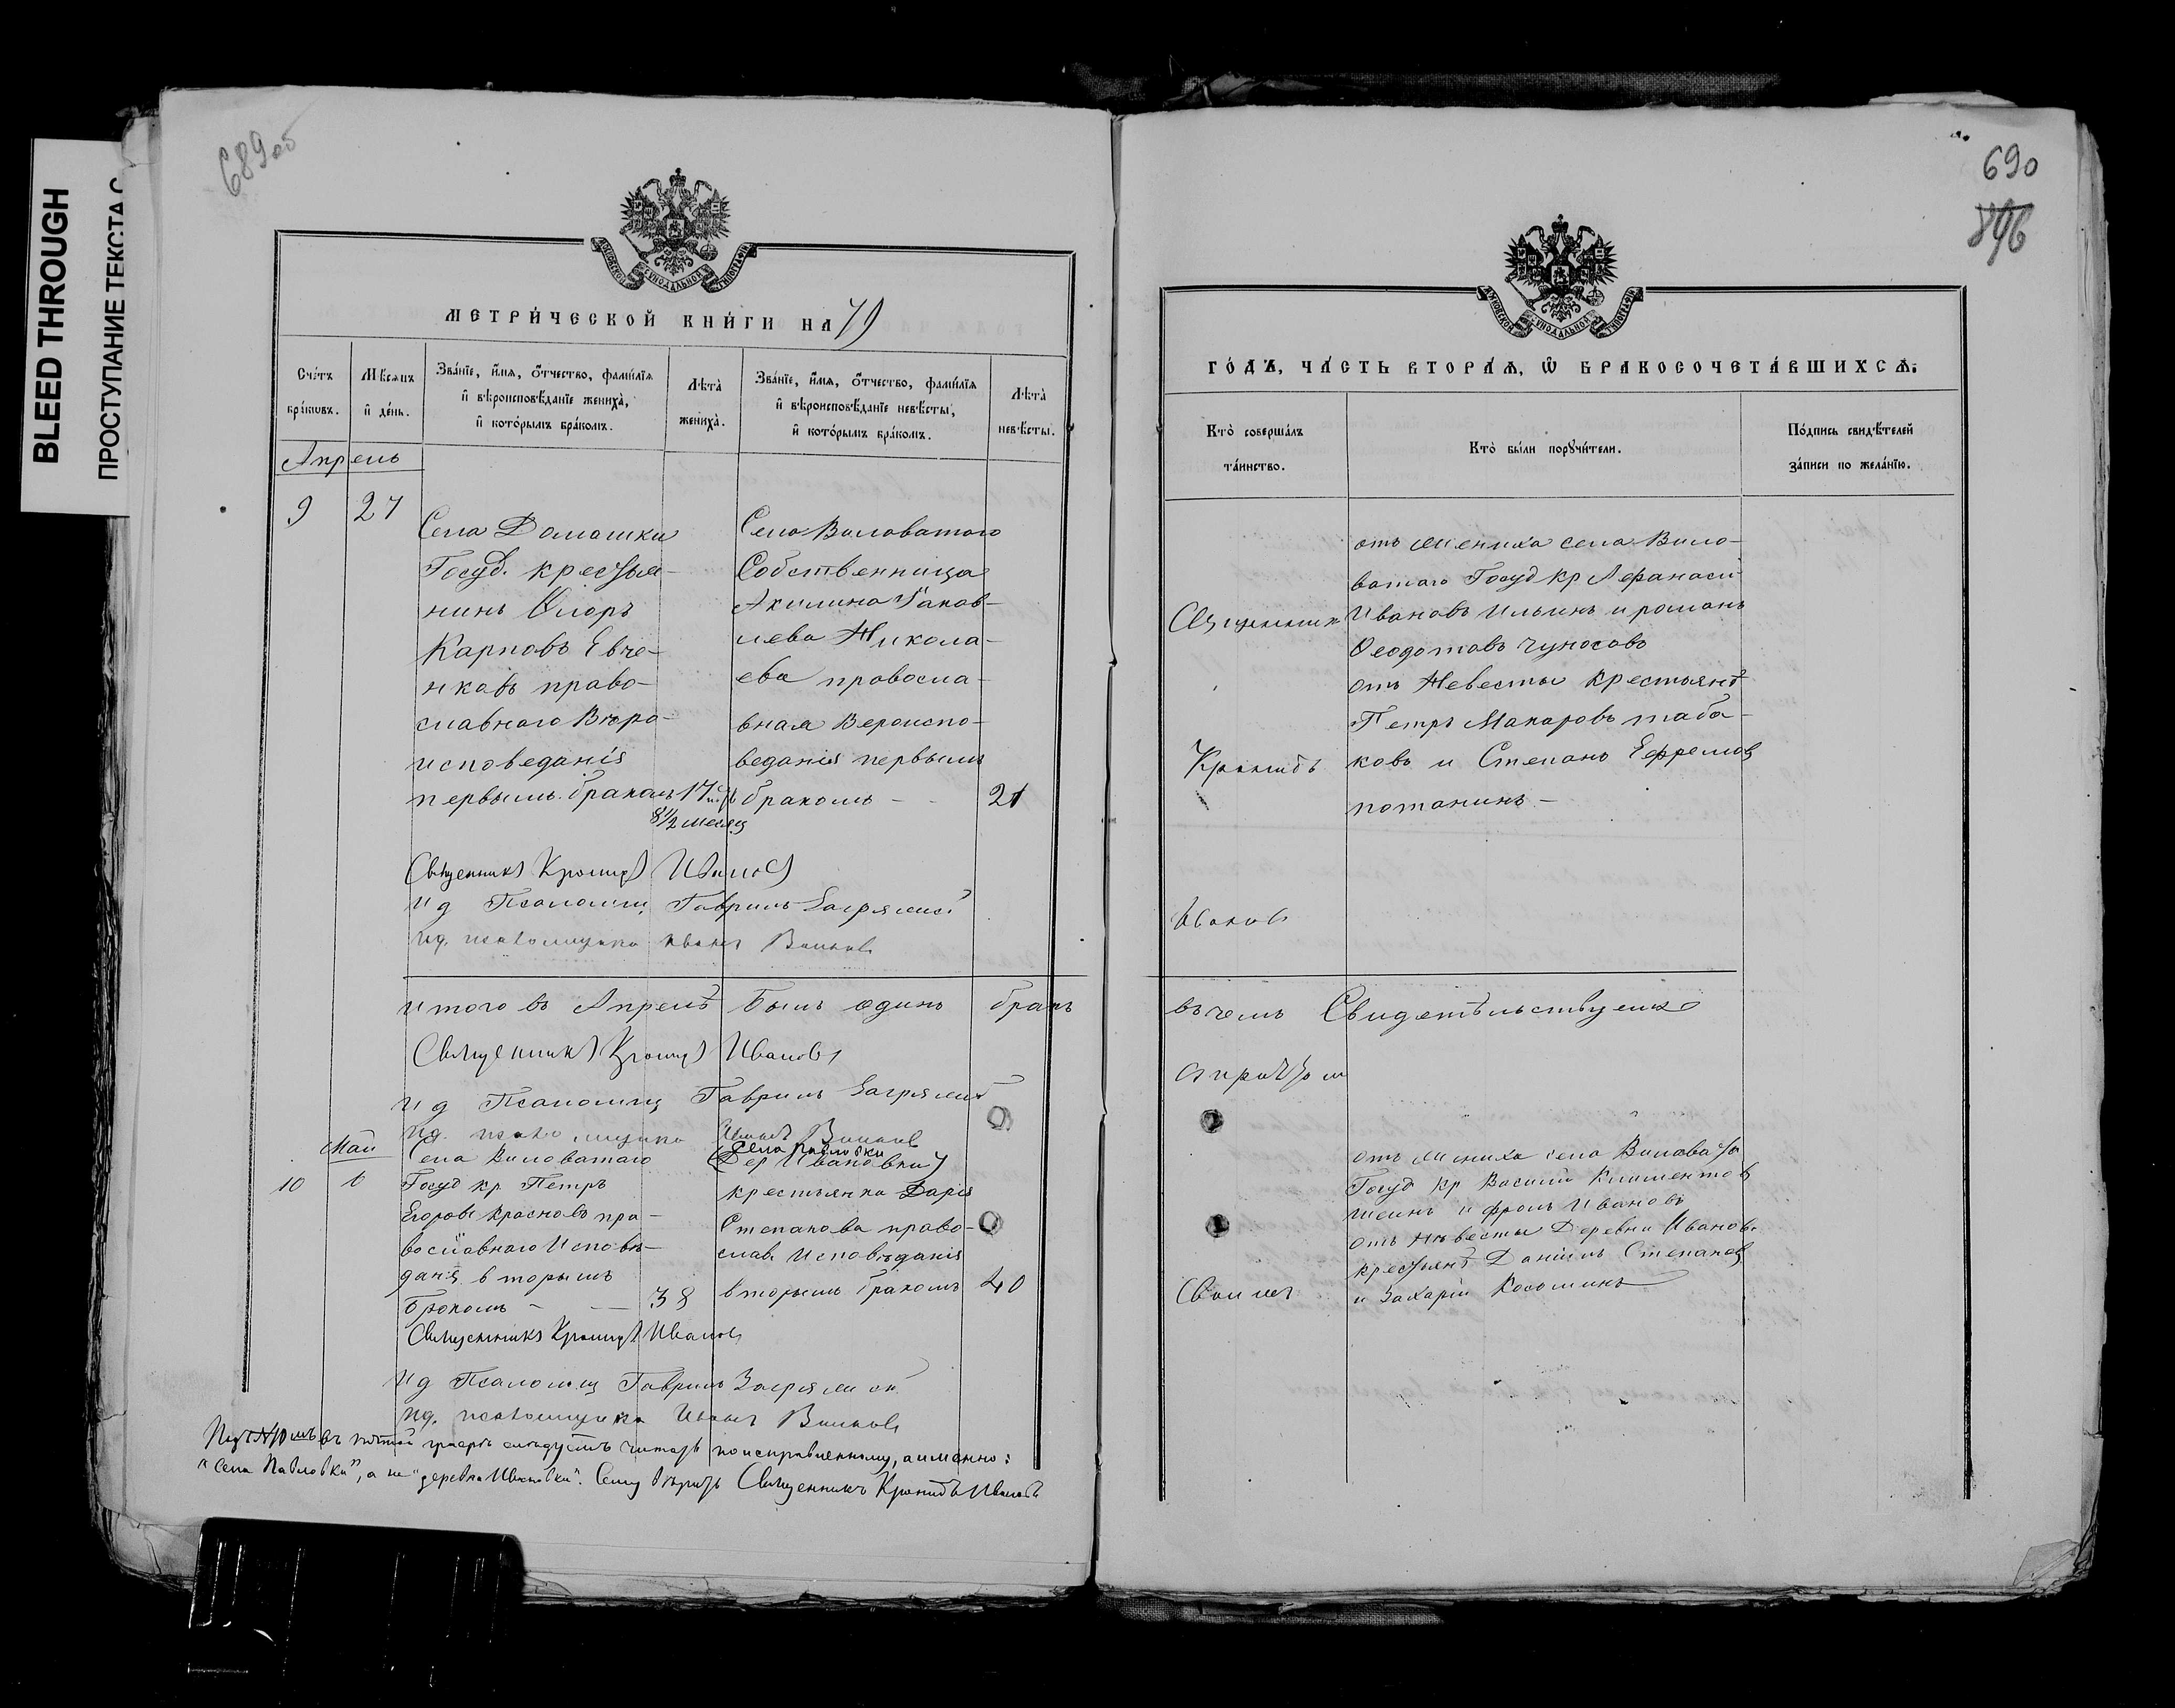 BLEED THROUGH
ПРОСТУПАНИЕ ТЕКСТА С
689 об
МЕТРИ́ЧЕСКОЙ КНИ́ГИ НА 79
Сче́тъ бра́ковъ.
Мѣ́сяцъ и҆ де́нь.
Зва́нїе, и҆́мя, ѻ҆́тчество, фами́лїя и҆ вѣроисповѣ́данїе жениха̀, и҆ кото́рымъ бра́комъ.
Лѣ́та жениха̀.
Зва́нїе, и҆́мя, ѻ҆́тчество, фами́лїя и҆ вѣроисповѣ́данїе невѣ́сты, и҆ кото́рымъ бра́комъ.
Лѣ́та невѣ́сты.
Апрель
9
27
Села Домашки
Госуд. крестья-
нинъ Егоръ
Карповъ Евче-
нковъ право-
славнаго Веро-
исповеданія
первымъ бракомъ 17
8 1/2 месяц
Село Виловатого
Собственница
Акилина Яков-
лева Никола-
ева правосла-
вная Вероиспо-
веданія первымъ
бракомъ - -
21
Священникъ Кронидъ Ивановъ
И д Псаломщ Гавриилъ
ид. псаломщика Иванъ
итого въ Апрелѣ былъ одинъ бракъ
Священникъ Кронидъ Ивановъ
И д Псаломщ Гавриилъ
ид. псаломщика Иванъ
Май
10
6
Села Виловатаго
Госуд кр Петръ
Егоровъ Красновъ пра-
вославнаго Исповѣ-
данія вторымъ
бракомъ - -
38
Села Павловки
(Дер Ивановки)
крестьянка Дарія
Степанова право-
слав. Исповѣданія
вторымъ бракомъ
40
Священникъ Кронидъ Ивановъ
И д Псаломщ Гавриилъ
ид. псаломщика Иванъ
Подъ №10мъ въ пятой графѣ слѣдуетъ читать по исправленному, а именно:
"села Павловки", а не "деревни Ивановки". Сему вѣрить Священникъ Кронидъ Ивановъ
690
896
ГО́ДЪ, ЧА́СТЬ ВТОРА́Ѧ, Ѡ҆ БРАКОСОЧЕТА́ВШИХСѦ:
Кто̀ соверша́лъ та́инство.
Кто̀ бы́ли порꙋчи́тели.
По́дпись свидѣ́телей за́писи по жела́нїю.
Священник
Кронидъ
Ивановъ
отъ жениха села Вило-
ватаго Госуд кр Афанаси
Ивановъ Ильинъ и романъ
Феодотовъ Чуносовъ
отъ Невесты крестьянѣ
Петръ Макаровъ таба-
ковъ и Степанъ Ефремов
потанинъ -
въ чемъ Свидетельствуемъ
отъ жениха села Виловата
Госуд кр Василій Климентов
и фролъ Ивановъ
отъ невесты Деревни Иванов.
крестьянѣ Даніилъ Степанов
и Захарій Косоминъ